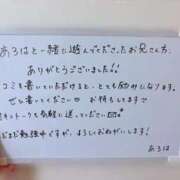 あろはと一緒に遊んでくださったお兄さん方、
ありがとうございました!!
コミを書いていただけると、とても励みになります。
ぜひ書いてください お待ちしてます
トークも気軽に送ってください
まだまだ勉強中ですが、よろしくおねがいします!
あろは